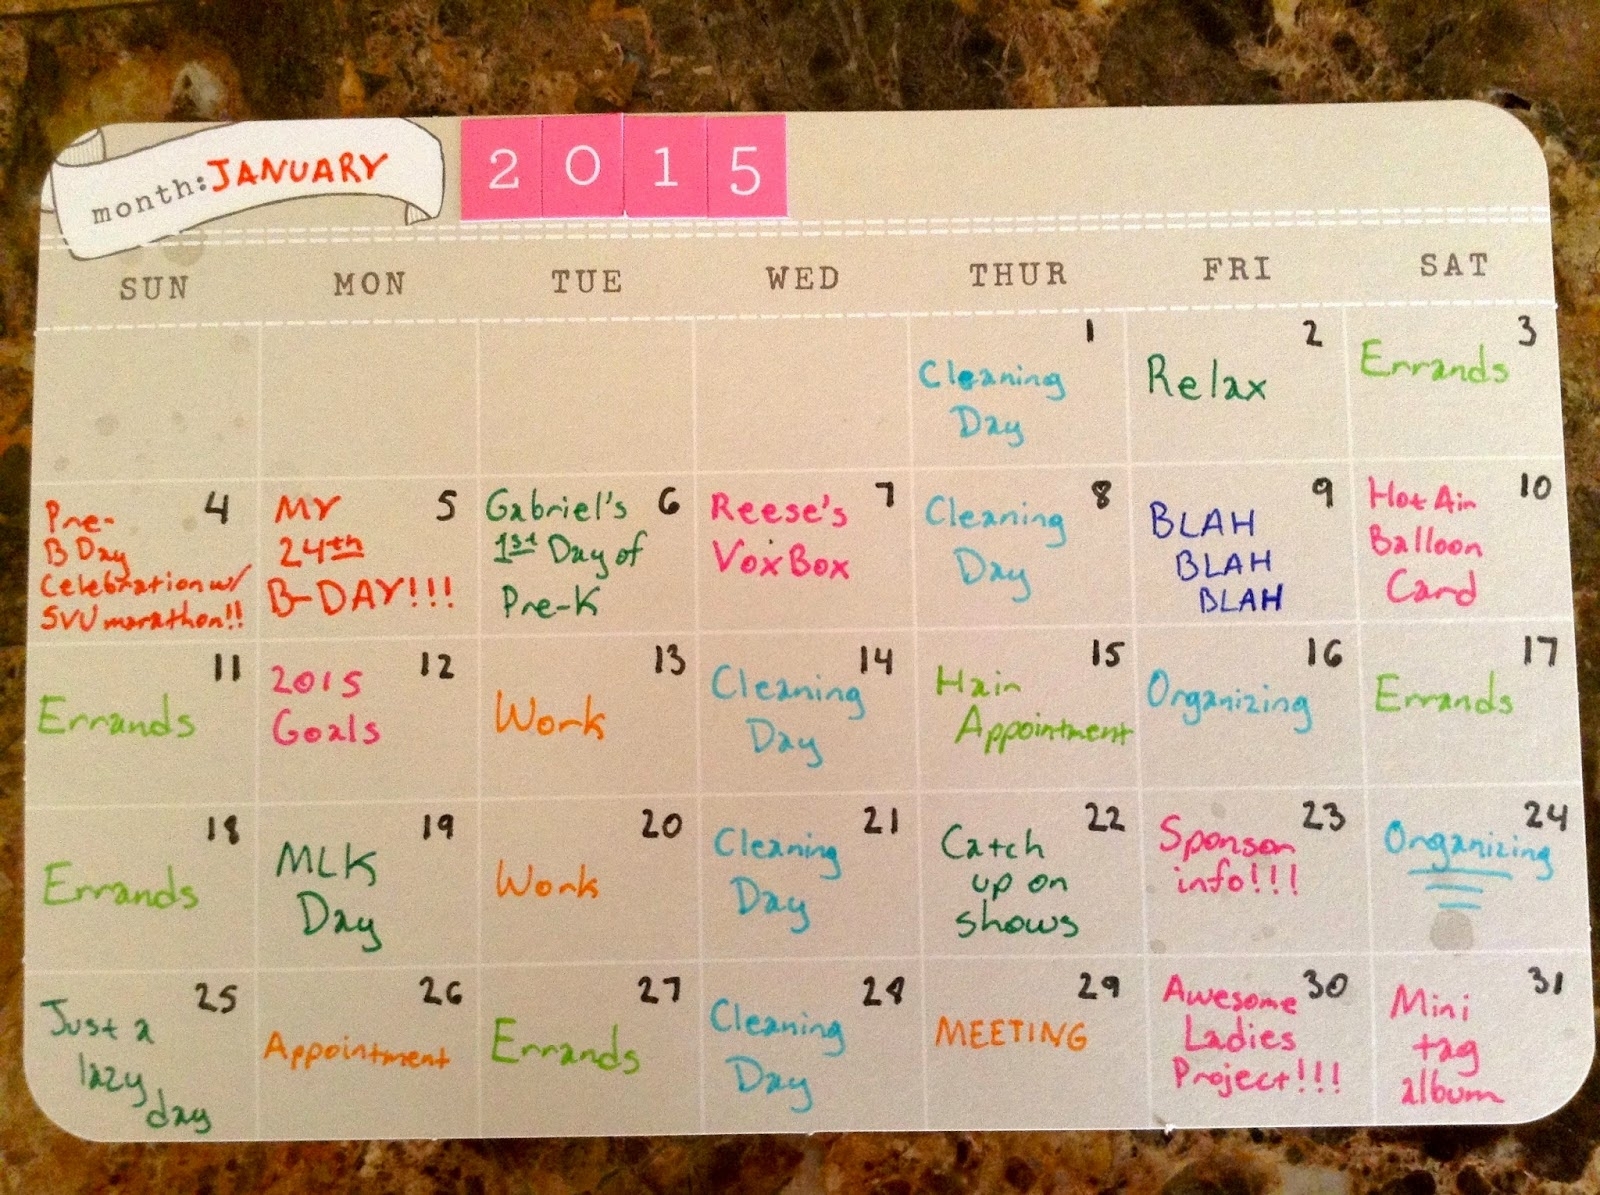 month: JANUARY
2015
SUN MON TUE WED THUR FRI SAT
1
Cleaning
Day
2
Relax
3
Errands
4
Pre-
B Day
Celebration w/
SVU marathon!!
5
MY
24th
B-DAY!!!
6
Gabriel's
1st Day of
Pre-K
7
Reese's
VoxBox
8
Cleaning
Day
9
BLAH
BLAH
BLAH
10
Hot Air
Balloon
Card
11
Errands
12
2015
Goals
13
Work
14
Cleaning
Day
15
Hair
Appointment
16
Organizing
17
Errands
18
Errands
19
MLK
Day
20
Work
21
Cleaning
Day
22
Catch
up on
shows
23
Sponsor
info!!!
24
Organizing
25
Just a
lazy
day
26
Appointment
27
Errands
28
Cleaning
Day
29
MEETING
30
Awesome
Ladies
Project!!!
31
Mini
tag
album